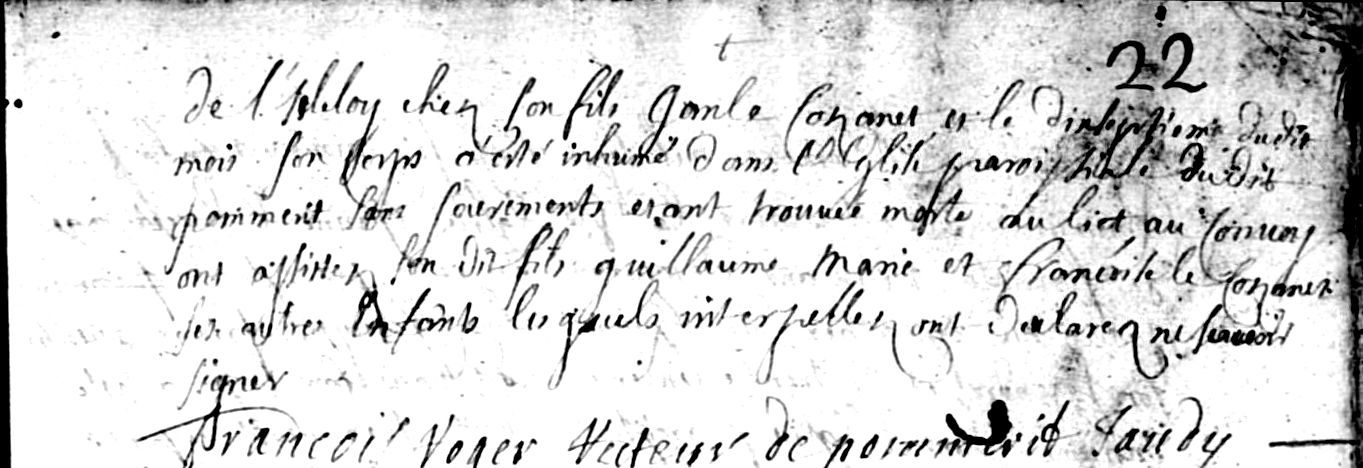 22
de l' chez son fils et le dixseptieme dudit
mois son corps a esté inhumé dans l'Eglise paroissiale dudit
pommerit sans sacrements etant trouvée morte au lict au convoy
ont assistez son dit fils guillaume Marie et francoise le Cozanet
ses autres Enfants lesquels interpellez ont declarez ne scavoir
signer
Francois Recteur de pommerit Jaudy